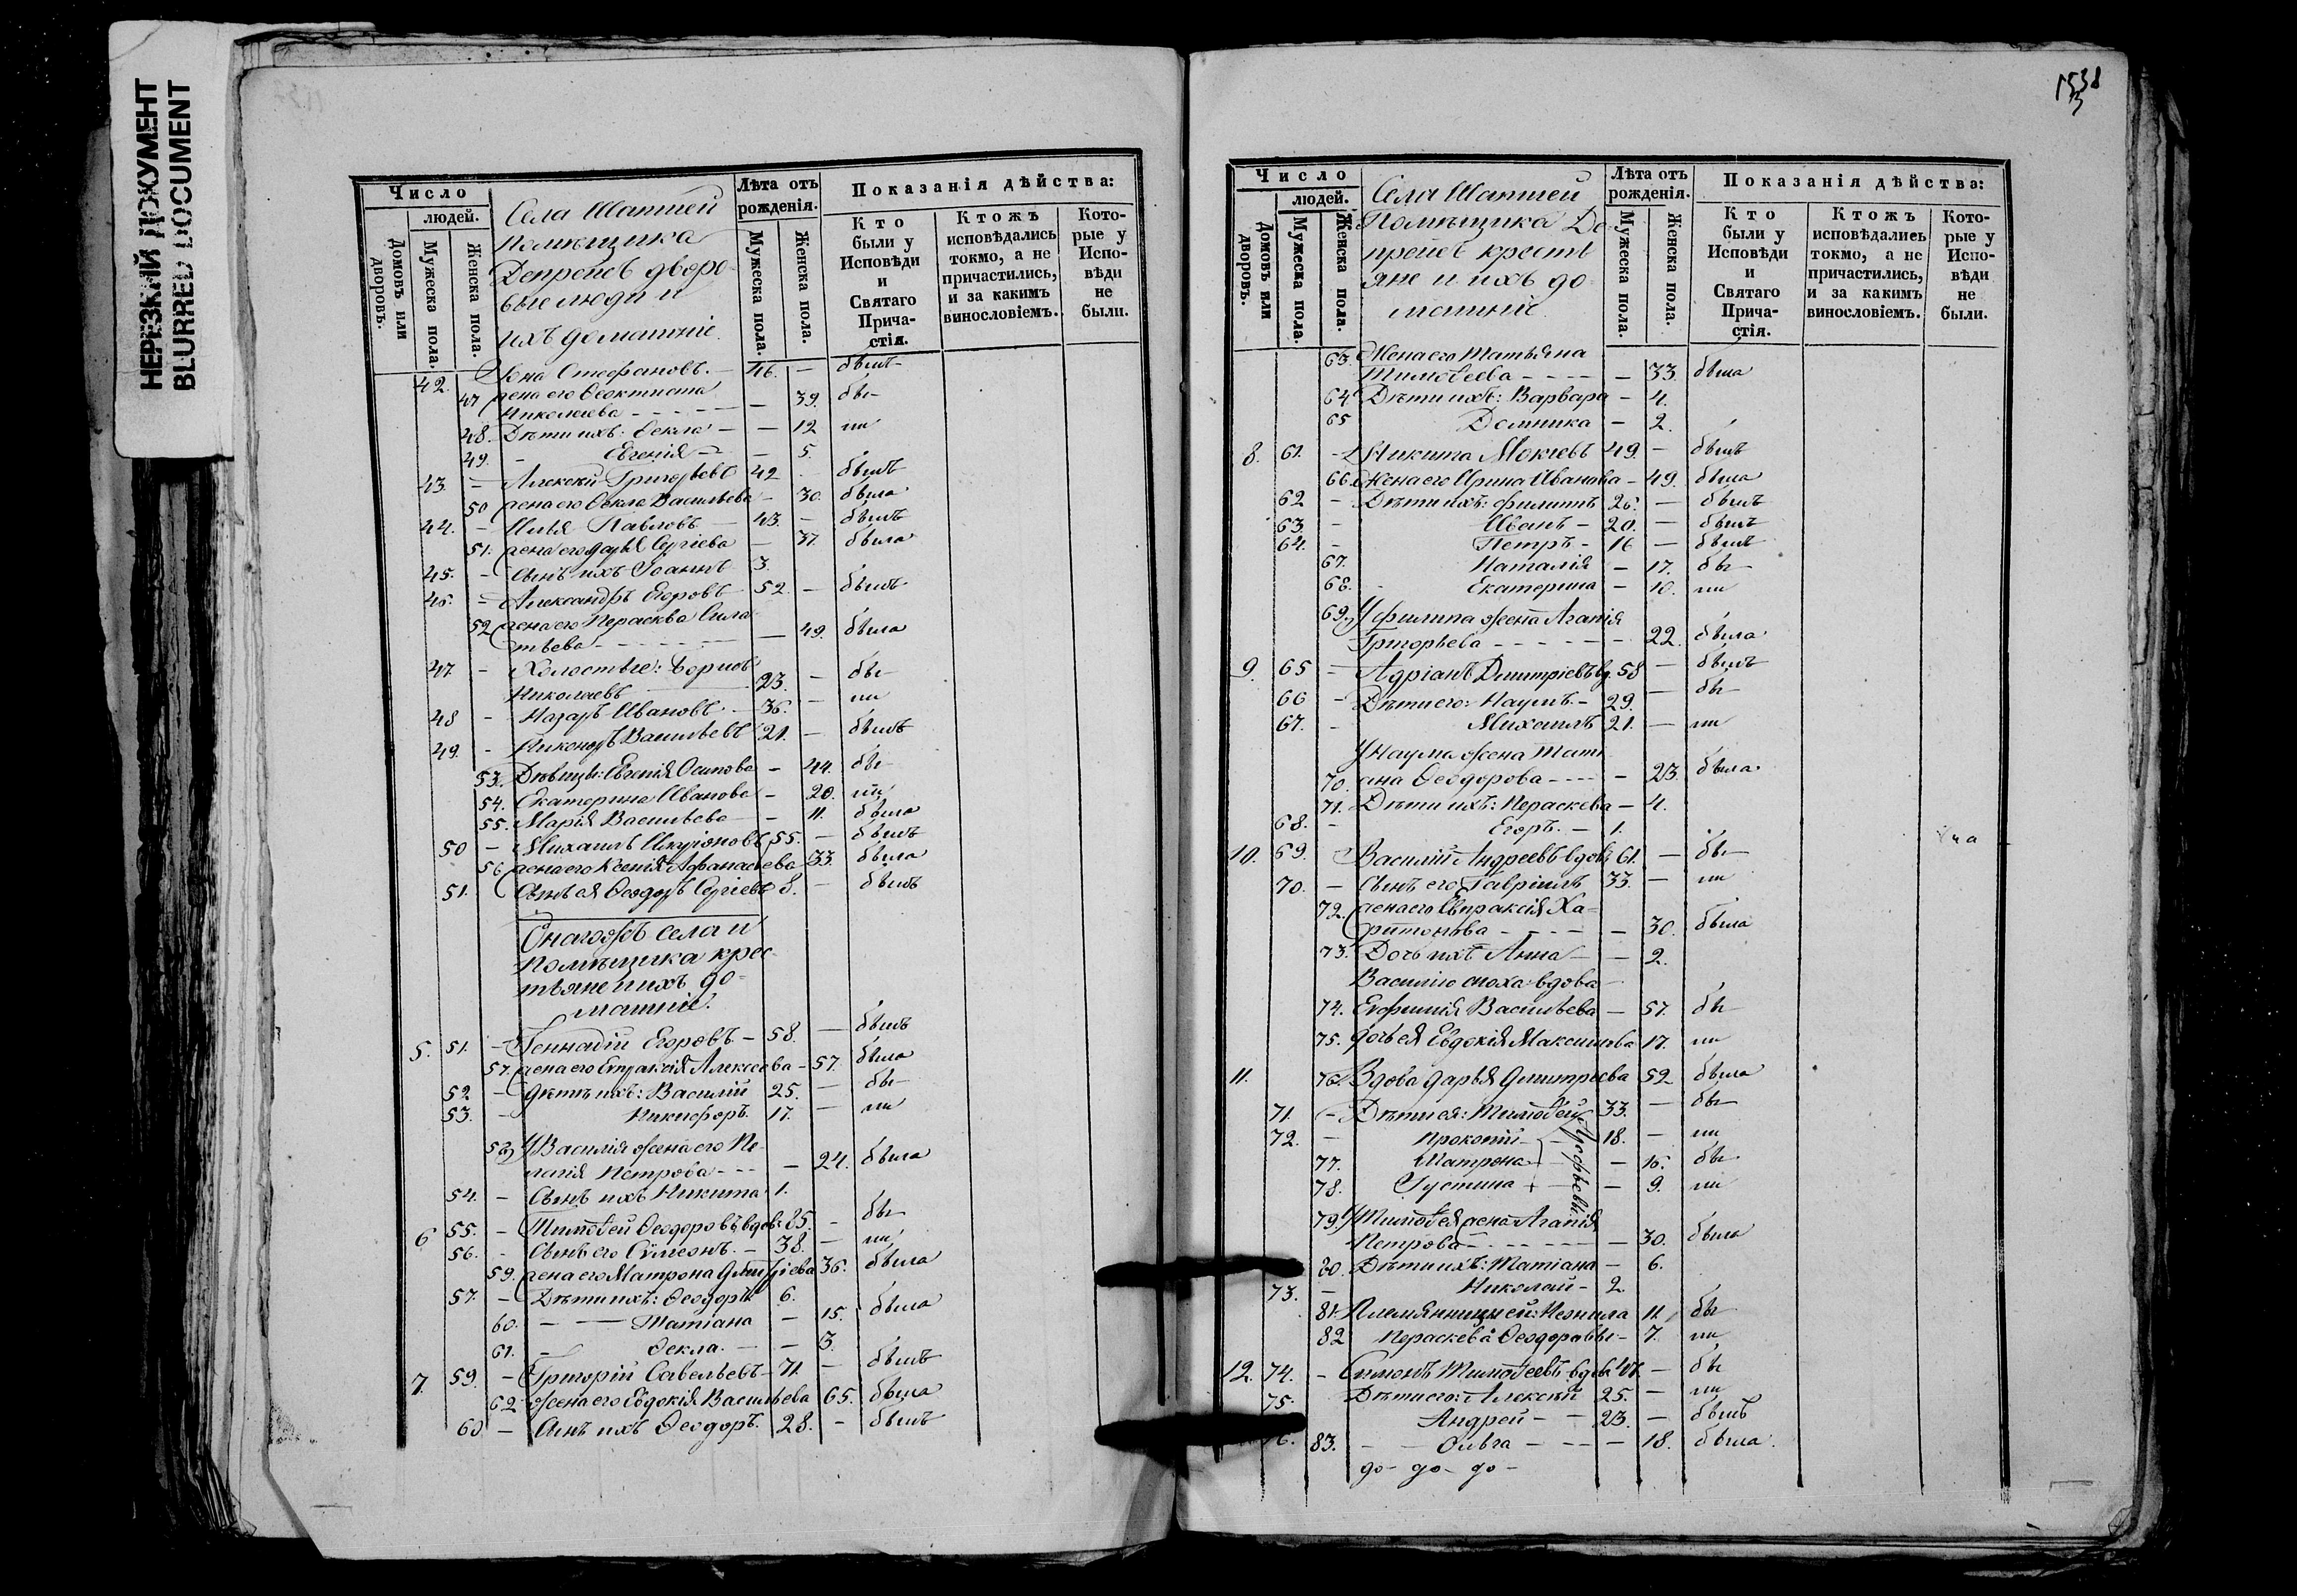 НЕРЕЗКИЙ ДОКУМЕНТ
BLURRED DOCUMENT
Число
людей.
Домовъ или дворовъ.
Мужеска пола.
Женска пола.
Села Шаптей
Помѣщика
Депрейсъ дворо-
вые люди и
ихъ домашніе.
Лѣта отъ рожденія.
Мужеска пола.
Женска пола.
Показанія дѣйства:
Кто были у Исповѣди и Святаго Прича-стія.
Ктожъ исповѣдались токмо, а не причастились, и за какимъ винословіемъ.
Кото-рые у Испо-вѣди не были.
42. Іона Стефановъ. 46. — бывъ
47 жена его Ѳеоктиста
Николаева — 39. бы
48. Дѣти ихъ: Ѳекла — 12 ли
49. Евгенія — 5.
43. — Алексѣй Григорьевъ 42 бывъ
50 жена его Ѳекла Васильева — 30. была
44. — Илья Павловъ — 43. — бывъ
51. жена его Дарья Сергіева — 37. была
45. — Сынъ ихъ Іоаннъ 3.
46. — Александръ Егоровъ 52. — бывъ
52 жена его Параскева Сила-
тьева — 49. была
47. — Холостые: Борисъ
Николаевъ 23. — бы
48 — Назаръ Ивановъ — 36. — ли
49. — Никоноръ Васильевъ 21. — бывъ
53. Дѣвицы: Евгенія Осипова — 44. бы
54. Екатерина Иванова — 20. ли
55. Марія Васильева — 11. была
50 — Михаилъ 55. — бывъ
56 жена его Ксенія Афанасьева 33. была
51. Сынъ ея Ѳеодоръ Сергіевъ 8. — бывъ
Онагожъ села и
Помѣщика крес-
тьяне и ихъ до-
машніе.
5. 51. — Геннадій Егоровъ — 58. — бывъ
57. жена его Евпраксія Алексѣева — 57. была
52 — Дѣти ихъ: Василій 25. — бы
53. — Никифоръ 17. — ли
58 У Василія жена его Пе-
лагія Петрова — 24. была
54. — Сынъ ихъ Никита 1.
6 55. — Тимоѳей Ѳеодоровъ вдовъ 85. — бы
56. — Сынъ его Сѵмеонъ. — 38. — ли
59. жена его Матрона Дмитріева 36. была
57. — Дѣти ихъ: Ѳеодоръ 6.
60. — Татіана — 15. была
61. — Ѳекла. — 3.
7. 59. — Григорій Савельевъ 71. — бывъ
62 жена его Евдокія Васильева 65. была
60 — Сынъ ихъ Ѳеодоръ. 28. — бывъ
1538
Число
людей.
Домовъ или дворовъ.
Мужеска пола.
Женска пола.
Села Шаптей
Помѣщика Де-
прейсъ кресть
яне и ихъ до
машніе.
Лѣта отъ рожденія.
Мужеска пола.
Женска пола.
Показанія дѣйства:
Кто были у Исповѣди и Святаго Прича-стія.
Ктожъ исповѣдались токмо, а не причастились, и за какимъ винословіемъ.
Кото-рые у Испо-вѣди не были.
63. Жена его Татьяна
Тимоѳеева — — 33. была
64 Дѣти ихъ: Варвара — 4.
65 Домника — 2.
8. 61. — Никита Мокіевъ 49. — бывъ
66. Жена его Ирина Иванова — 49. была
62 — Дѣти ихъ: Филиппъ 26. — бывъ
63. — Иванъ — 20. — бывъ
64. — Петръ — 16 — бывъ
67. Наталія — 17. бы
68. Екатерина — 10. ли
69. У Филипа жена Агапія
Григорьева — 22. была
9. 65 — Адріанъ Дмитріевъ вд. 58 — бывъ
66 — Дѣти его: Наумъ — 29. — бы
67. — Михаилъ 21. — ли
У Наума жена Тати
70. ана Ѳеодорова — 23. была
71. Дѣти ихъ: Параскева — 4.
68. — Егоръ. — 1.
10. 69. Василій Андреевъ вдовъ 61. — бы
70. — Сынъ его Гавріилъ 33. — ли
72. жена его Евпраксія Ха-
ритонова — 30. была
73. Дочь ихъ Анна — 2.
Василію сноха вдова
74. Евфимія Васильева — 57. бы
75. дочь ея Евдокія Максимова 17. ли
11. 76. Вдова Дарья Дмитріева 52 была
71. — Дѣти ея: Тимоѳей 33. — бы
72. — Прокопій — 18. — ли
77. Матрона — 16. бы
78. Іустина — 9. ли
79. У Тимоѳея жена Агапія
Петрова — 30. была
80. Дѣти ихъ: Татіана — 6.
73. — Николай — 2.
81. Племянницы ей: Неонила 11. бы
82 Параскева Ѳеодоровы — 7. ли
12. 74. — Симонъ Тимоѳеевъ вдовъ 47. — бы
75. Дѣти его: Алексѣй 25. — ли
76. Андрей — 23. — бывъ
83. — Ольга — 18. была.
до — до — до —